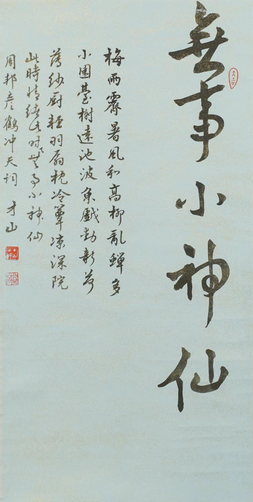 無事小神仙
梅雨霽暑風和高柳亂蟬多
小園臺榭遠池波魚戲動新荷
薄紗厨輕羽扇枕冷簟凉深院
此時情緒此时天無事小神仙
周邦彥鶴冲天詞 才山